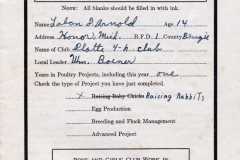 NOTE: All blanks should be filled in with ink.
Name Laban D Arnold Age 14
Address Honor, Mich. R.F.D. 1 County Benzie
Name of Club Platte 4-h. club
Local Leader Wm. Boiner
Years in Poultry Projects, including this year one
Check the type of Project you have just completed.
x Raising Baby Chicks Raising Rabbits
Egg Production
Breeding and Flock Management
Advanced Project
BOYS AND GIRLS CLUB WORK IN